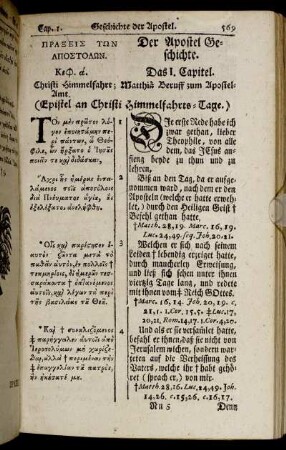 Cap. 1. Geschichte der Apostel. 569
ΠΡΑΞΕΙΣ ΤΩΝ
ΑΠΟΣΤΟΛΩΝ.
Κεφ. α.
Der Apostel Ge-
schichte.
Das I. Capitel.
Christi Himmelfahrt; Matthiä Beruff zum Apostel-
Amt.
(Epistel an Christi Himmelfahrts-Tage.)
Τὸν μὲν πρῶτον λόγον
ἐποιησάμην περὶ
πάντων, ὦ Θεό-
φιλε, ὧν ἤρξατο ὁ Ἰησοῦς
ποιεῖν τε καὶ διδάσκειν,
Ἄχρι ἧς ἡμέρας ἐντει-
λάμενος τοῖς ἀποστόλοις
διὰ Πνεύματος ἁγίου,
οὓς ἐξελέξατο, ἀνελήφθη.
Οἷς καὶ παρέστησεν ἑ-
αυτὸν ζῶντα μετὰ τὸ
παθεῖν αὐτὸν, ἐν πολλοῖς
τεκμηρίοις, δι' ἡμερῶν τεσσα-
ράκοντα ὀπτανόμενος
αὐτοῖς, καὶ λέγων τὰ περὶ
τῆς βασιλείας τοῦ Θεοῦ.
Καὶ † συναλιζόμενος
παρήγγειλεν αὐτοῖς ἀπὸ
Ἱεροσολύμων μὴ χωρίζε-
σθαι, ἀλλὰ περιμένειν τὴν
ἐπαγγελίαν τοῦ πατρὸς,
ἣν ἠκούσατέ μου.
1 Die erste Rede habe ich
zwar gethan, lieber
Theophile, von alle
dem, das JEsus an-
fieng beyde zu thun und zu
lehren,
2 Biß an den Tag, da er aufge-
nommen ward, nach dem er den
Aposteln (welche er hatte erweh-
let,) durch den Heiligen Geist †
Befehl gethan hatte.
† Matth. 28, 19. Marc. 16, 19.
Luc. 24, 49. seq. Joh. 20, 21.
3 Welchen er sich nach seinem
Leiden † lebendig erzeiget hatte,
durch mancherley Erweisung,
und ließ sich sehen unter ihnen
viertzig Tage lang, und redete
mit ihnen vom ‡ Reich GOttes.
† Marc. 16, 14. Joh. 20, 19. c.
21, 1. 1. Cor. 15, 5. ‡ Luc. 17,
20, 21. Rom. 14, 17. 1. Cor. 4, 20.
4 Und als er sie versamlet hatte,
befahl er ihnen, daß sie nicht von
Jerusalem wichen, sondern war-
teten auf die Verheissung des
Vaters, welche ihr † habt gehö-
ret (sprach er,) von mir.
† Matth. 3, 11. Luc. 24, 49. Joh.
14, 26. c. 15, 26. c. 16, 17.
Nn 5 Denn